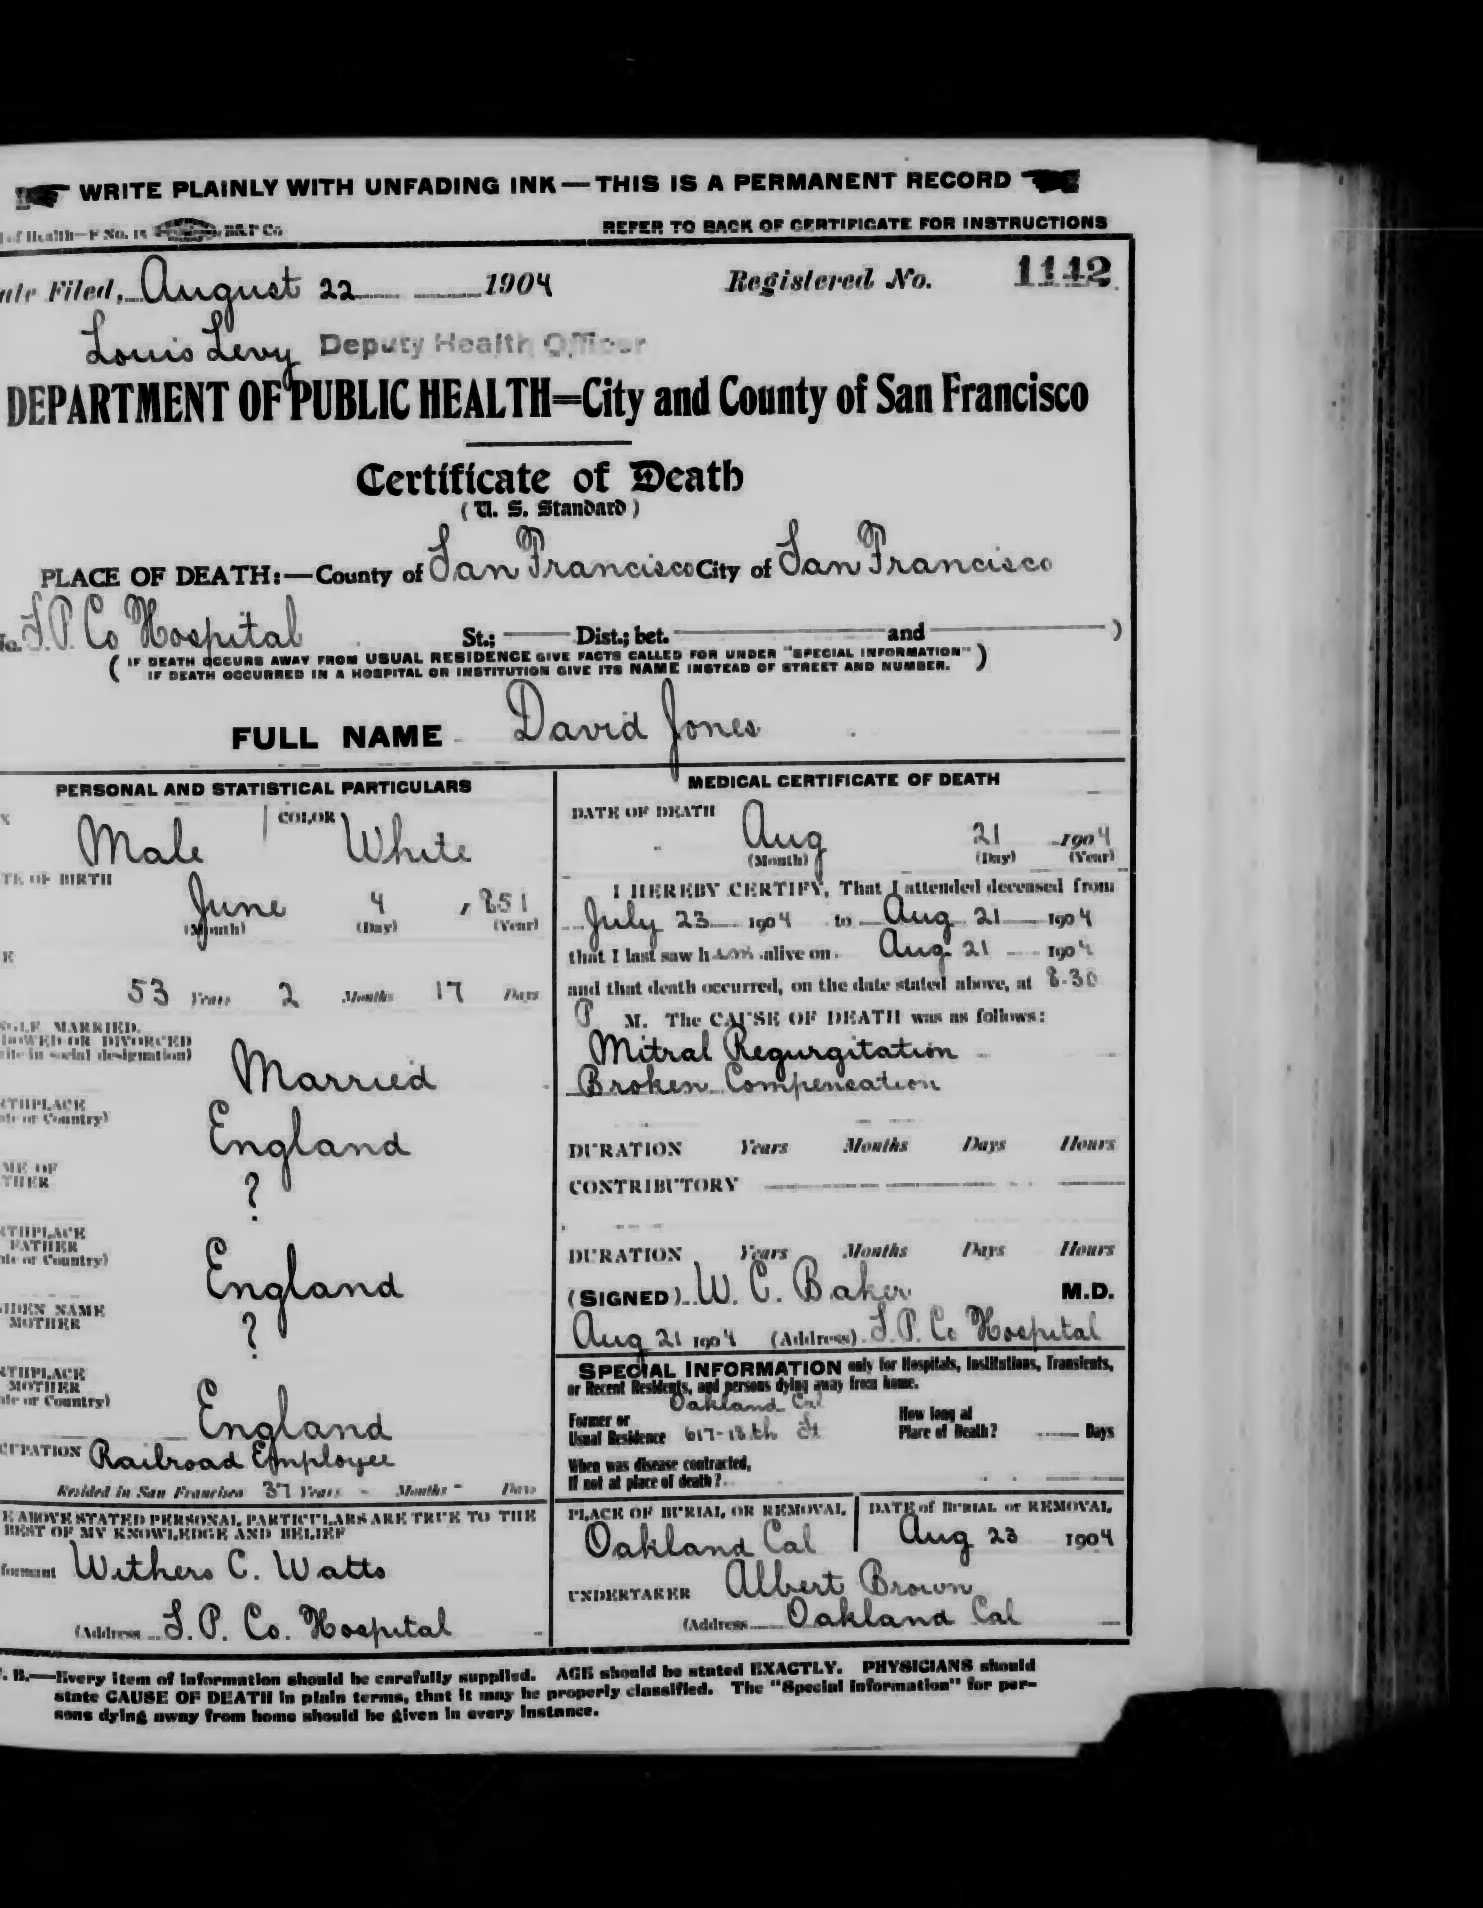 WRITE PLAINLY WITH UNFADING INK—THIS IS A PERMANENT RECORD
of Health—F No. 15 B&P Co
REFER TO BACK OF CERTIFICATE FOR INSTRUCTIONS
ate Filed, August 22 1904 Registered No. 1142
Louis Levy Deputy Health Officer
DEPARTMENT OF PUBLIC HEALTH=City and County of San Francisco
Certificate of Death
(U. S. Standard)
PLACE OF DEATH:—County of San Francisco City of San Francisco
No. S.P. Co Hospital St.; Dist.; bet. and )
( IF DEATH OCCURS AWAY FROM USUAL RESIDENCE GIVE FACTS CALLED FOR UNDER "SPECIAL INFORMATION" )
IF DEATH OCCURRED IN A HOSPITAL OR INSTITUTION GIVE ITS NAME INSTEAD OF STREET AND NUMBER.
FULL NAME David Jones
PERSONAL AND STATISTICAL PARTICULARS
X COLOR
Male White
TE OF BIRTH
June 4 , 851
(Month) (Day) (Year)
E
53 Years 2 Months 17 Days
NGLE MARRIED,
DOWED OR DIVORCED
rite in social designation)
Married
RTHPLACE
ate or Country)
England
ME OF
THER
?
RTHPLACE
FATHER
ate or Country)
England
IDEN NAME
MOTHER
?
RTHPLACE
MOTHER
ate or Country)
England
CUPATION Railroad Employee
Resided in San Francisco 37 Years - Months - Days
E ABOVE STATED PERSONAL PARTICULARS ARE TRUE TO THE
BEST OF MY KNOWLEDGE AND BELIEF
formant Withers C. Watts
(Address S.P. Co. Hospital
MEDICAL CERTIFICATE OF DEATH
DATE OF DEATH
Aug 21 1904
(Month) (Day) (Year)
I HEREBY CERTIFY, That I attended deceased from
July 23 1904 to Aug 21 1904
that I last saw him alive on Aug 21 1904
and that death occurred, on the date stated above, at 8-30
P M. The CAUSE OF DEATH was as follows:
Mitral Regurgitation
Broken Compensation
DURATION Years Months Days Hours
CONTRIBUTORY
DURATION Years Months Days Hours
(SIGNED) W. C. Baker M.D.
Aug 21 1904 (Address) S.P. Co Hospital
SPECIAL INFORMATION only for Hospitals, Institutions, Transients,
or Recent Residents, and persons dying away from home.
Oakland Cal
Former or
Usual Residence 617-18th St
How long at
Place of Death? Days
When was disease contracted,
If not at place of death?
PLACE OF BURIAL OR REMOVAL
Oakland Cal
DATE of BURIAL or REMOVAL
Aug 23 1904
UNDERTAKER Albert Brown
(Address Oakland Cal
. B.—Every item of information should be carefully supplied. AGE should be stated EXACTLY. PHYSICIANS should
state CAUSE OF DEATH in plain terms, that it may be properly classified. The "Special Information" for per-
sons dying away from home should be given in every instance.